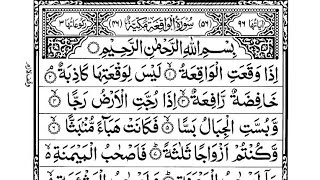 اٰیَاتُهَا ٩٦ (٥٦) سُوْرَةُ الْوَاقِعَةِ مَكِّیَّةٌ (٤٦) رُكُوْعَاتُهَا ٣
بِسْمِ اللّٰهِ الرَّحْمٰنِ الرَّحِیْمِ
اِذَا وَقَعَتِ الْوَاقِعَةُ ۙ﴿۱﴾ لَیْسَ لِوَقْعَتِهَا كَاذِبَةٌ ۘ﴿۲﴾
خَافِضَةٌ رَّافِعَةٌ ۙ﴿۳﴾ اِذَا رُجَّتِ الْاَرْضُ رَجًّا ۙ﴿۴﴾
وَّ بُسَّتِ الْجِبَالُ بَسًّا ۙ﴿۵﴾ فَكَانَتْ هَبَآءً مُّنْۢبَثًّا ۙ﴿۶﴾
وَّ كُنْتُمْ اَزْوَاجًا ثَلٰثَةً ؕ﴿۷﴾ فَاَصْحٰبُ الْمَیْمَنَةِ ۙ۬